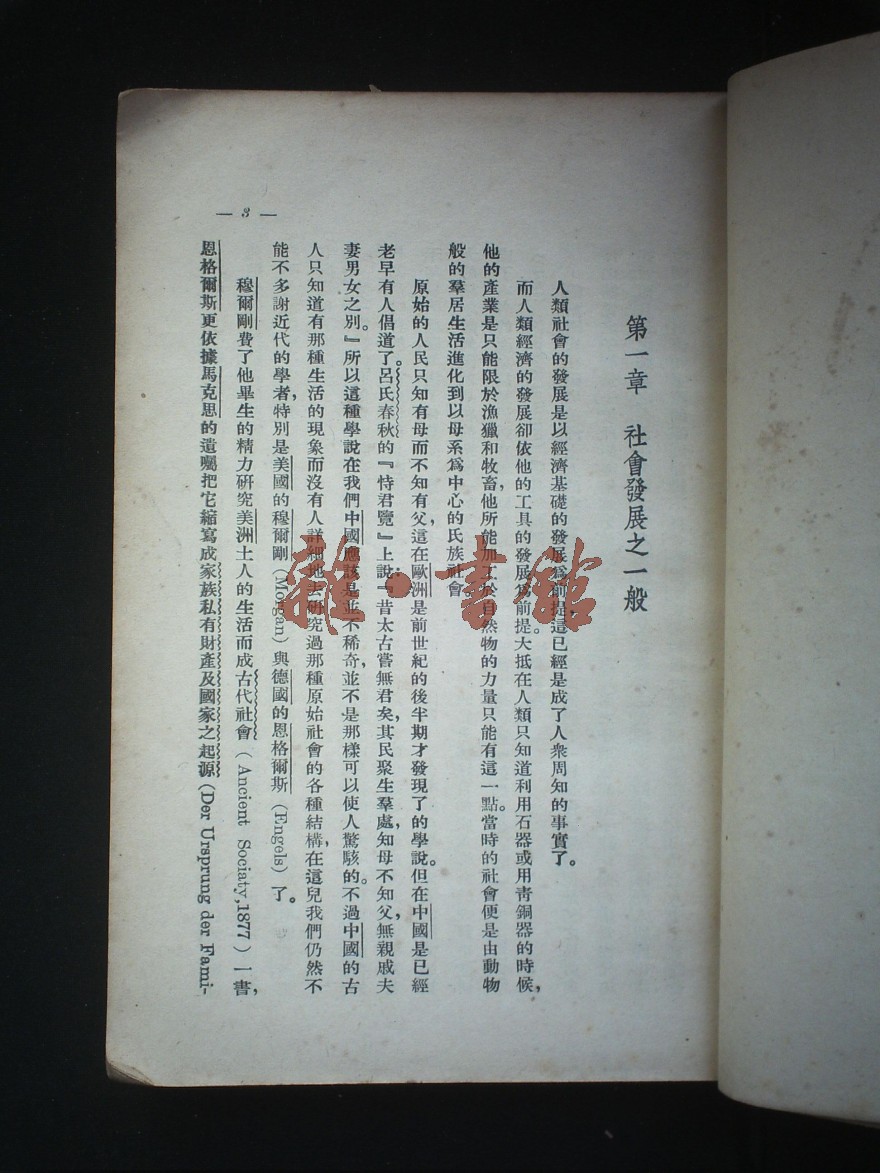 第一章　社會發展之一般
人類社會的發展是以經濟基礎的發展爲前提，這已經是成了人衆周知的事實了。
而人類經濟的發展卻依他的工具的發展爲前提。大抵在人類只知道利用石器或用靑銅器的時候，
他的產業是只能限於漁獵和牧畜，他所能加工於自然物的力量只能有這一點。當時的社會便是由動物
般的羣居生活進化到以母系爲中心的氏族社會
原始的人民只知有母而不知有父，這在歐洲是前世紀的後半期才發現了的學說。但在中國是已經
老早有人倡道了。呂氏春秋的『恃君覽』上說：『昔太古嘗無君矣，其民聚生羣處，知母不知父，無親戚夫
妻男女之別。』所以這種學說在我們中國應該是並不稀奇，並不是那樣可以使人驚駭的。不過中國的古
人只知道有那種生活的現象而沒有人詳細地去硏究過那種原始社會的各種結構，在這兒我們仍然不
能不多謝近代的學者，特別是美國的穆爾剛（Morgan）與德國的恩格爾斯（Engels）了。
穆爾剛費了他畢生的精力硏究美洲土人的生活而成古代社會（Ancient Sociaty,1877）一書，
恩格爾斯更依據馬克思的遺囑把它縮寫成家族私有財產及國家之起源（Der Ursprung der Fami-
— 3 —
龍·書館